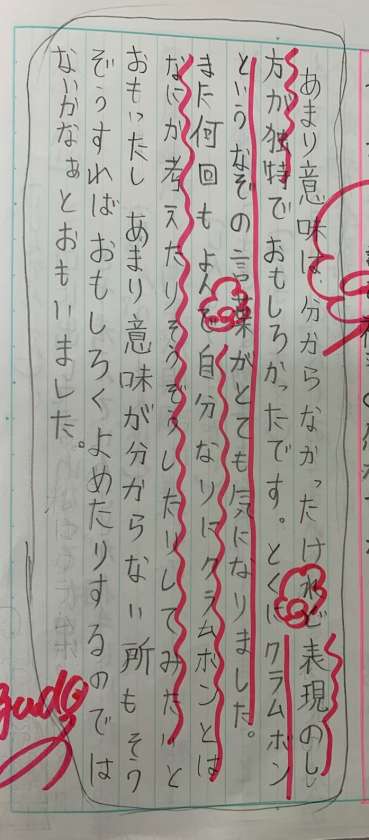 あまり意味は、分からなかったけれど表現のし
方が独特でおもしろかったです。とくにクラムボン
というなぞの言葉がとても気になりました。
また何回もよんで自分なりにクラムボンとは
なにか考えたりそうぞうしたりしてみたいと
おもったしあまり意味が分からない所もそう
ぞうすればおもしろくよめたりするのでは
ないかなぁとおもいました。